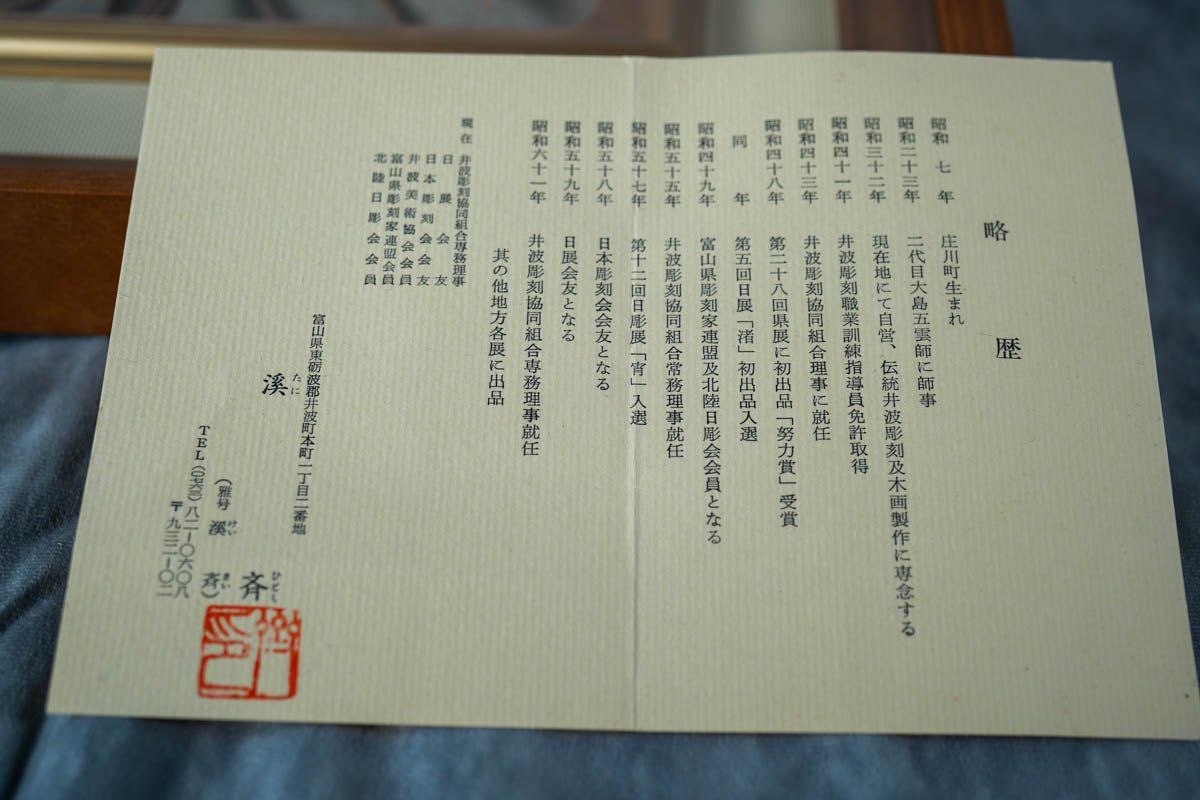 略歴
昭和七年 庄川町生まれ
昭和二十三年 二代目大島五雲師に師事
昭和三十二年 現在地にて自営、伝統井波彫刻及木画製作に専念する
昭和四十一年 井波彫刻職業訓練指導員免許取得
昭和四十三年 井波彫刻協同組合理事に就任
昭和四十八年 第二十八回県展に初出品「努力賞」受賞
同年 第五回日展「渚」初出品入選
昭和四十九年 富山県彫刻家連盟及北陸日彫会会員となる
昭和五十五年 井波彫刻協同組合常務理事就任
昭和五十七年 第十二回日彫展「宵」入選
昭和五十八年 日本彫刻会会友となる
昭和五十九年 日展会友となる
昭和六十一年 井波彫刻協同組合専務理事就任
其の他地方各展に出品
現在 井波彫刻協同組合専務理事
日展会友
日本彫刻会会友
井波美術協会会員
富山県彫刻家連盟会員
北陸日彫会会員
富山県東砺波郡井波町本町一丁目二番地
たに ひとし
溪 斉
けい さい
(雅号 溪 斉)
TEL(〇七六三)八二-〇六〇八
〒九三二-〇二